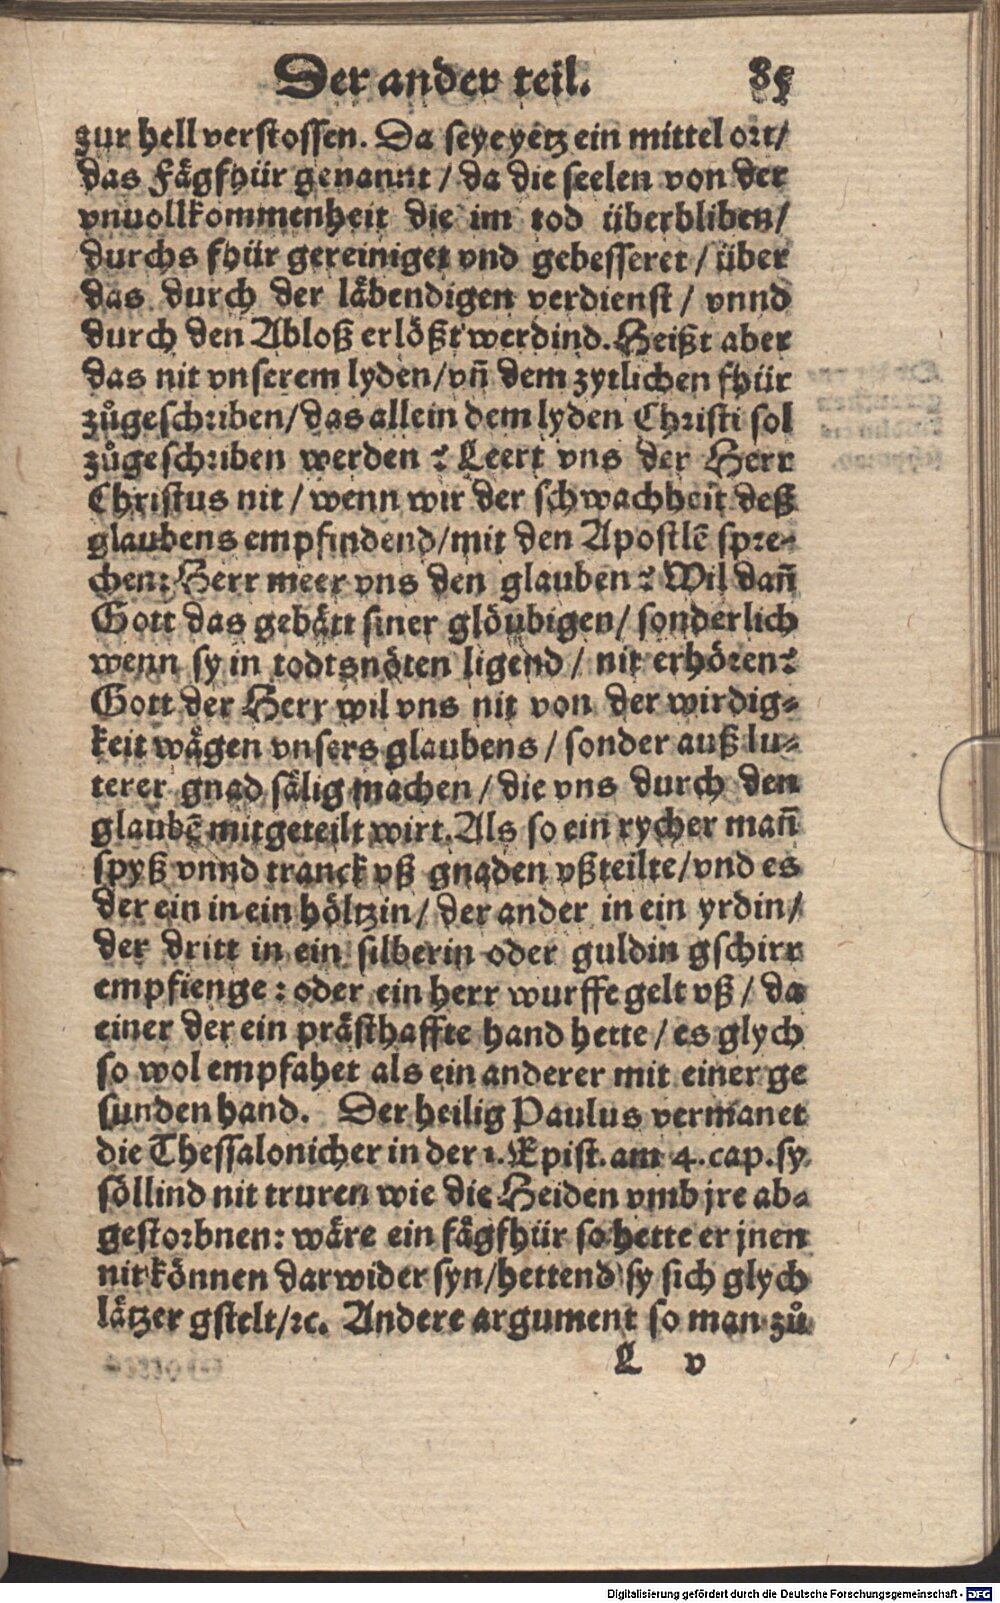 Der ander teil. 85
zur hell verstossen. Da seye yetz ein mittel ort/
das Fägfhür genannt / da die seelen von der
vnuollkommenheit die im tod überbliben/
durchs fhür gereiniget vnd gebesseret / über
das durch der läbendigen verdienst / vnnd
durch den Abloß erlößt werdind. Heißt aber
das nit vnserem lyden/vñ dem zytlichen fhür
zůgeschriben/das allein dem lyden Christi sol
zůgeschriben werden? Leert vns der Herr
Christus nit / wenn wir der schwachheit deß
glaubens empfindend/mit den Apostlē spre-
chen: Herr meer vns den glauben? Wil dañ
Gott das gebätt siner glöubigen/ sonderlich
wenn sy in todtsnöten ligend / nit erhören?
Gott der Herr wil vns nit von der wirdig-
keit wägen vnsers glaubens / sonder auß lu-
terer gnad sälig machen / die vns durch den
glaubē mitgeteilt wirt. Als so ein rycher mañ
spyß vnnd tranck vß gnaden vßteilte/vnd es
der ein in ein höltzin/ der ander in ein yrdin/
der dritt in ein silberin oder guldin gschirr
empfienge: oder ein herr wurffe gelt vß / da
einer der ein prästhaffte hand hette / es glych
so wol empfahet als ein anderer mit einer ge
sunden hand. Der heilig Paulus vermanet
die Thessalonicher in der 1. Epist. am 4. cap. sy
söllind nit truren wie die Heiden vmb jre ab-
gestorbnen: wäre ein fägfhür so hette er jnen
nit können darwider syn/hettend sy sich glych
lätzer gstelt/ꝛc. Andere argument so man zů
L v
Digitalisierung gefördert durch die Deutsche Forschungsgemeinschaft - DFG